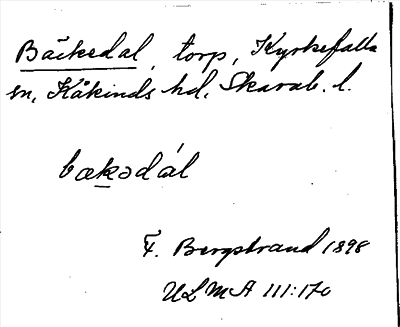 Bäckedal, torp, Kyrkefalla
sn, Kåkinds hd, Skarab. l.
bækədál
F. Bergstrand 1898
ULMA 111:170